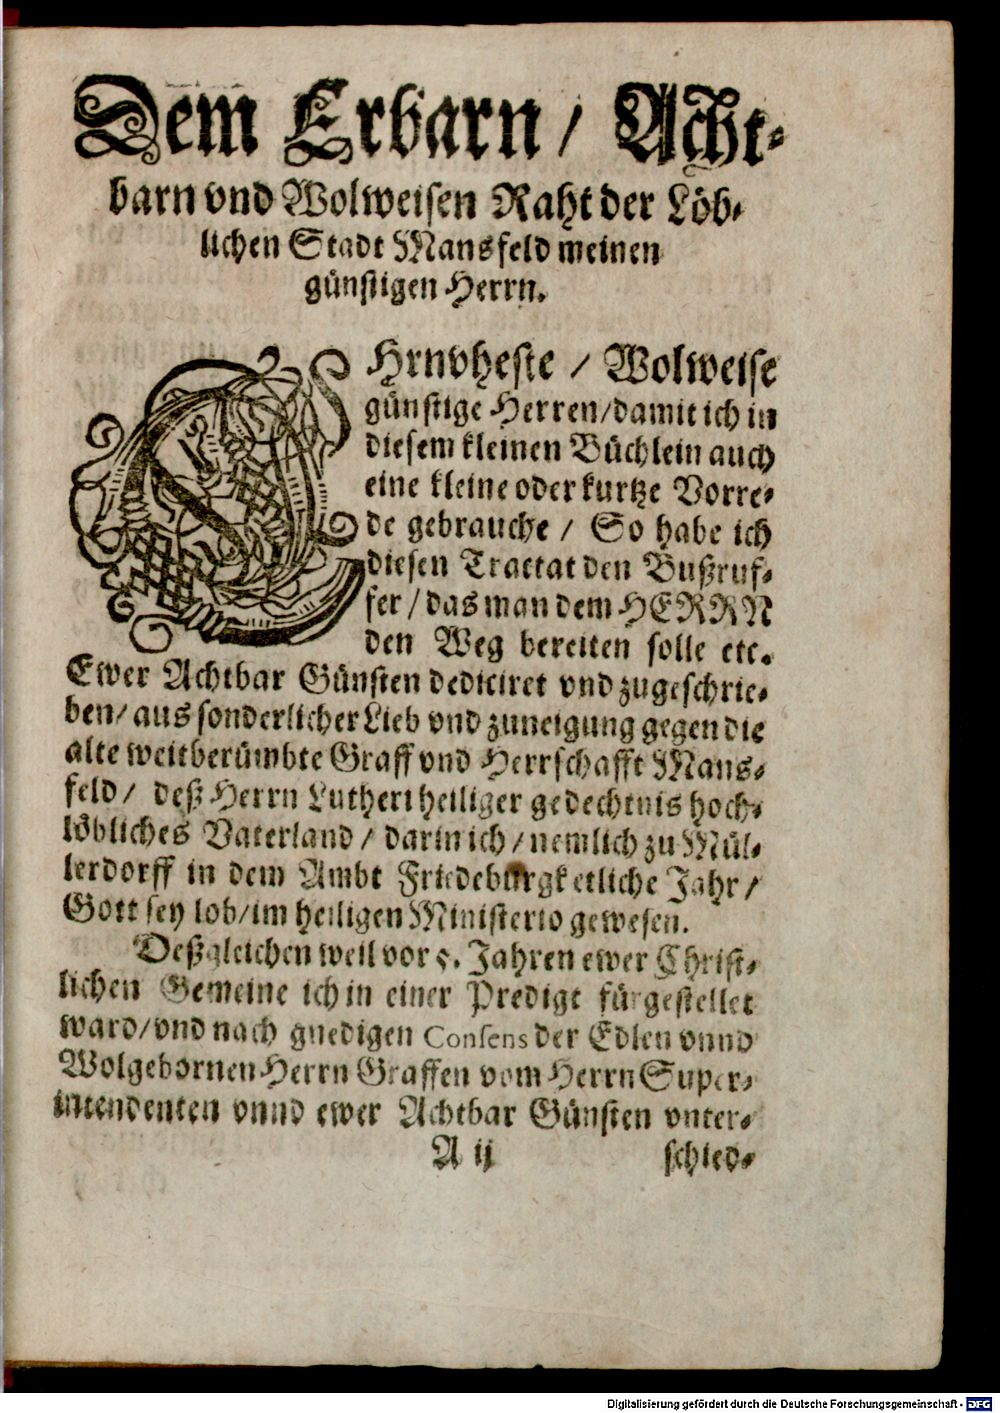 Dem Erbarn / Acht-
barn vnd Wolweisen Raht der Löb-
lichen Stadt Mansfeld meinen
günstigen Herrn.
EHrnvheste / Wolweise
günstige Herren/damit ich in
diesem kleinen Büchlein auch
eine kleine oder kurtze Vorre-
de gebrauche / So habe ich
diesen Tractat den Bußruf-
fer / das man dem HERRN
den Weg bereiten solle etc.
Ewer Achtbar Günsten dediciret vnd zugeschrie-
ben/ aus sonderlicher Lieb vnd zuneigung gegen die
alte weitberümbte Graff vnd Herrschafft Mans-
feld / deß Herrn Lutheri heiliger gedechtnis hoch-
löbliches Vaterland / darin ich / nemlich zu Mül-
lerdorff in dem Ambt Friedeburgk etliche Jahr /
Gott sey lob/ im heiligen Ministerio gewesen.
Deßgleichen weil vor 5. Jahren ewer Christ-
lichen Gemeine ich in einer Predigt fürgestellet
ward/vnd nach gnedigen Consens der Edlen vnnd
Wolgebornen Herrn Graffen vom Herrn Super-
intendenten vnnd ewer Achtbar Günsten vnter-
A ij schied-
Digitalisierung gefördert durch die Deutsche Forschungsgemeinschaft - DFG